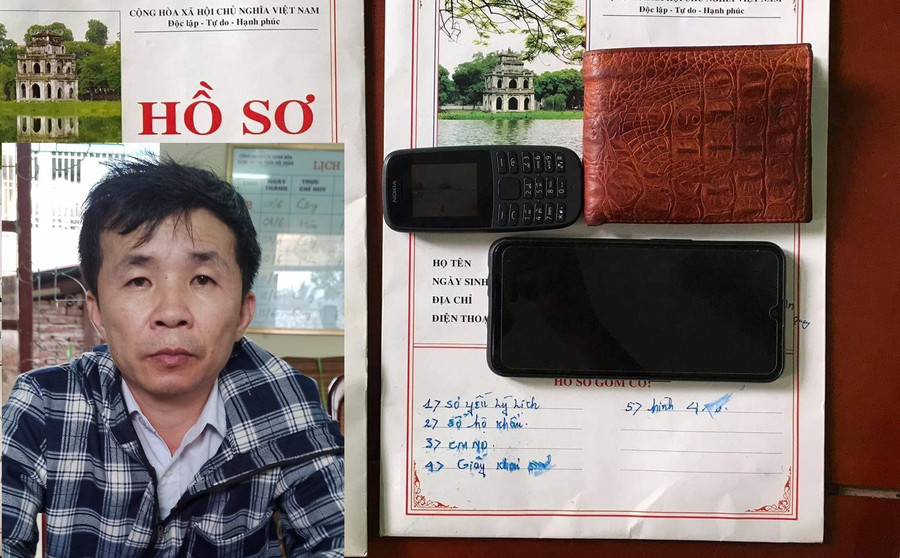 CỘNG HÒA XÃ HỘI CHỦ NGHĨA VIỆT NAM
Độc lập - Tự do - Hạnh phúc
HỒ SƠ
LỊCH
NGÀY
THÁNG
TRỰC
CHỈ HUY
CHỦ NGHĨA VIỆT NAM
Độc lập - Tự do - Hạnh phúc
NOKIA
HỌ TÊN
NGÀY SINH
ĐỊA CHỈ
ĐIỆN THOẠ
HỒ SƠ GỒM CÓ:
1> Sơ yếu lý lịch
2> Sổ hộ khẩu.
3> CMND.
4> Giấy khai
5> hình 4